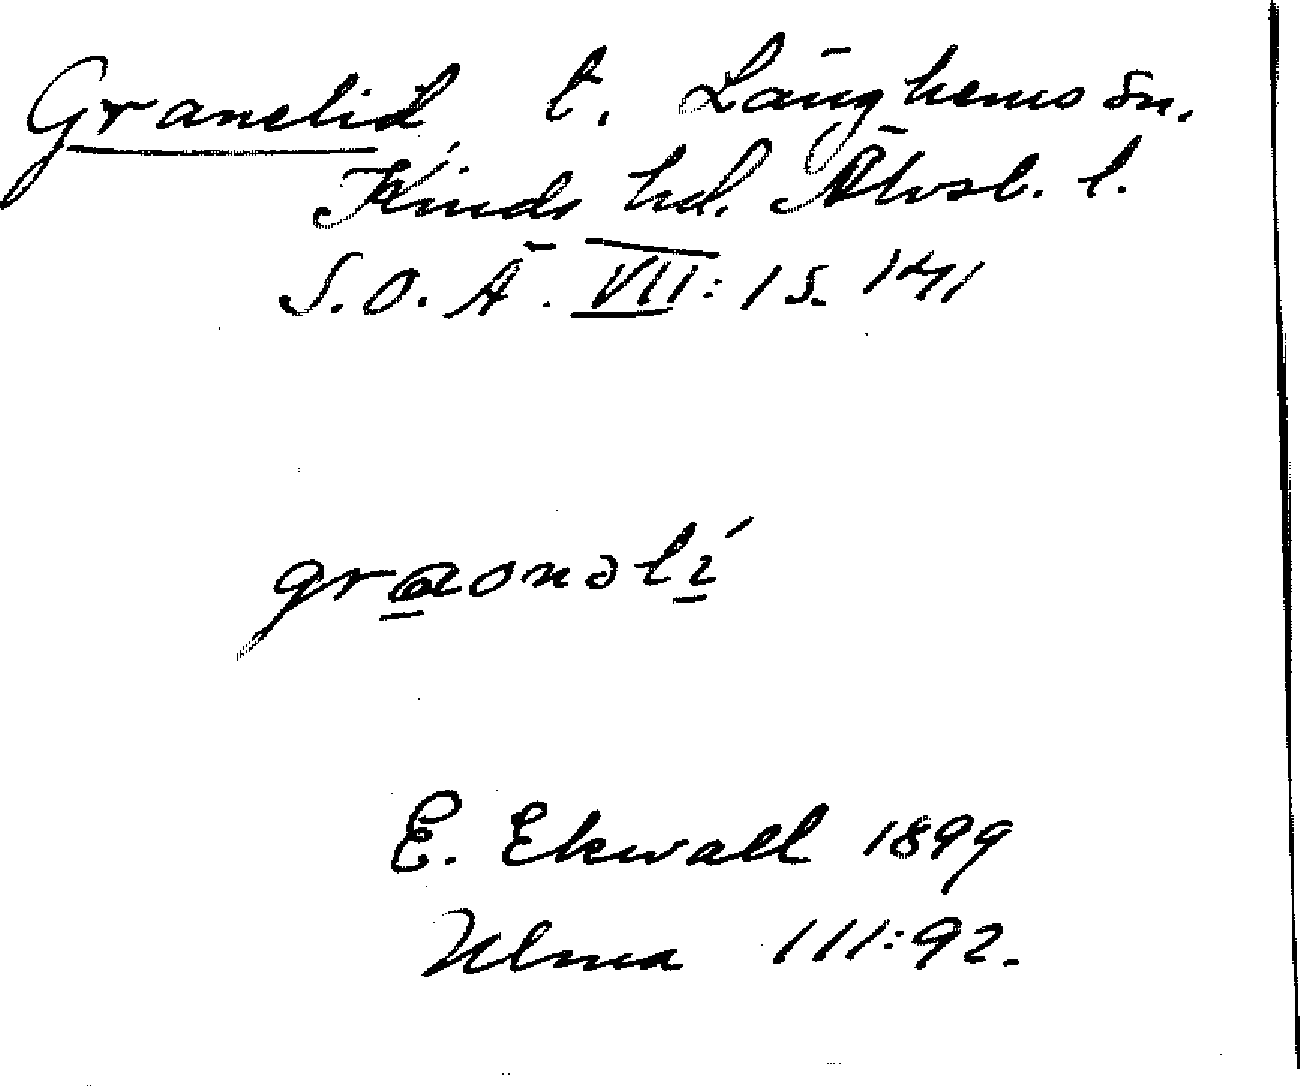 Granelid, t. Länghems sn.
Kinds hd. Älvsb. l.
S.O.Ä. VII:1 s. 141
E. Ekwall 1899
Ulma 111:92.